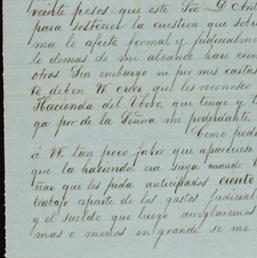 veinte pesos que este Sor D Ant
para sostener la cuestion que sobr
ma le afecte formal y judicialme
lo demas de mi alcance hare cuan
otros Sin embargo ni por mis cartas
te deben W. creer que les reconosco
Hacienda del Vovo, que tengo y t
ga por de la Señora mi poderdante
Como pode
á W. tan poco favor que apareciese
que la hacienda era suya cuando V
ñas que les pida anticipados ciento
trabajo aparte de los gastos judicial
y el sueldo que luego arreglaremos
mas o menos en grande se me